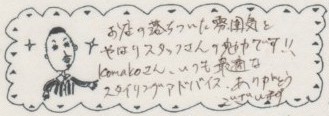 お店の落ちついた雰囲気と
やはりスタッフさんの魅力です!!
komakoさん、いつも素適な
スタイリングアドバイス、ありがとう
ございます